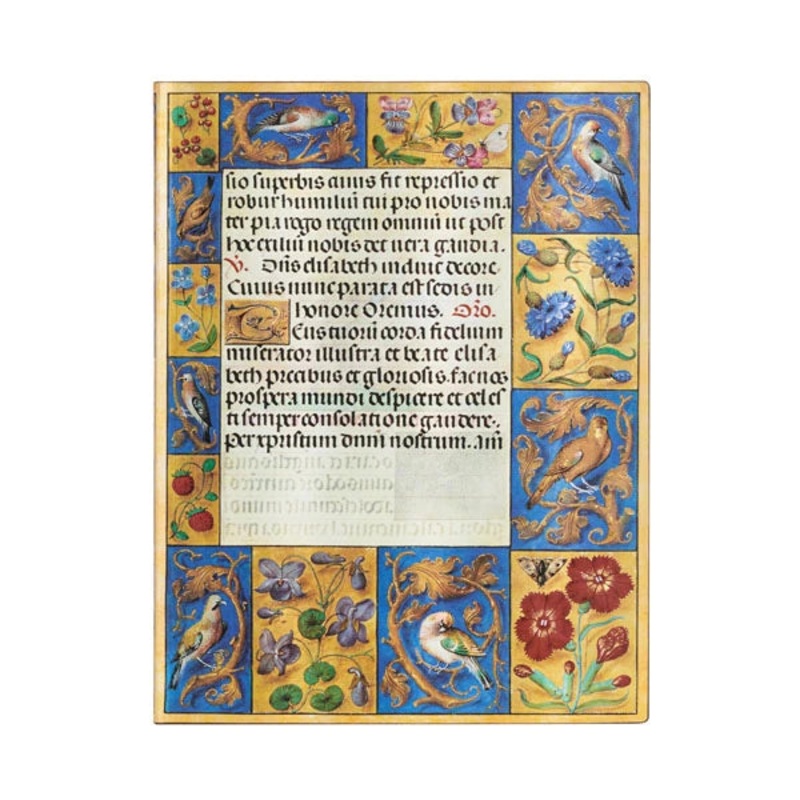 sio superbis cuius fit repressio et
robur humiliū tui pro nobis ma
ter pia rogo regem omniū ut post
hoc exiliū nobis det uera gaudia.
V. Dñs elisabeth induit decore
Cuius nunc parata est sedis in
honore Oremus. Oro.
Eus tuorū corda fidelium
miserator illustra et beate elisa
beth precibus et gloriosis. fac nos
prospera mundi despicere et celes
ti semper consolatione gaudere.
Per xpristum dnm nostrum. am̄